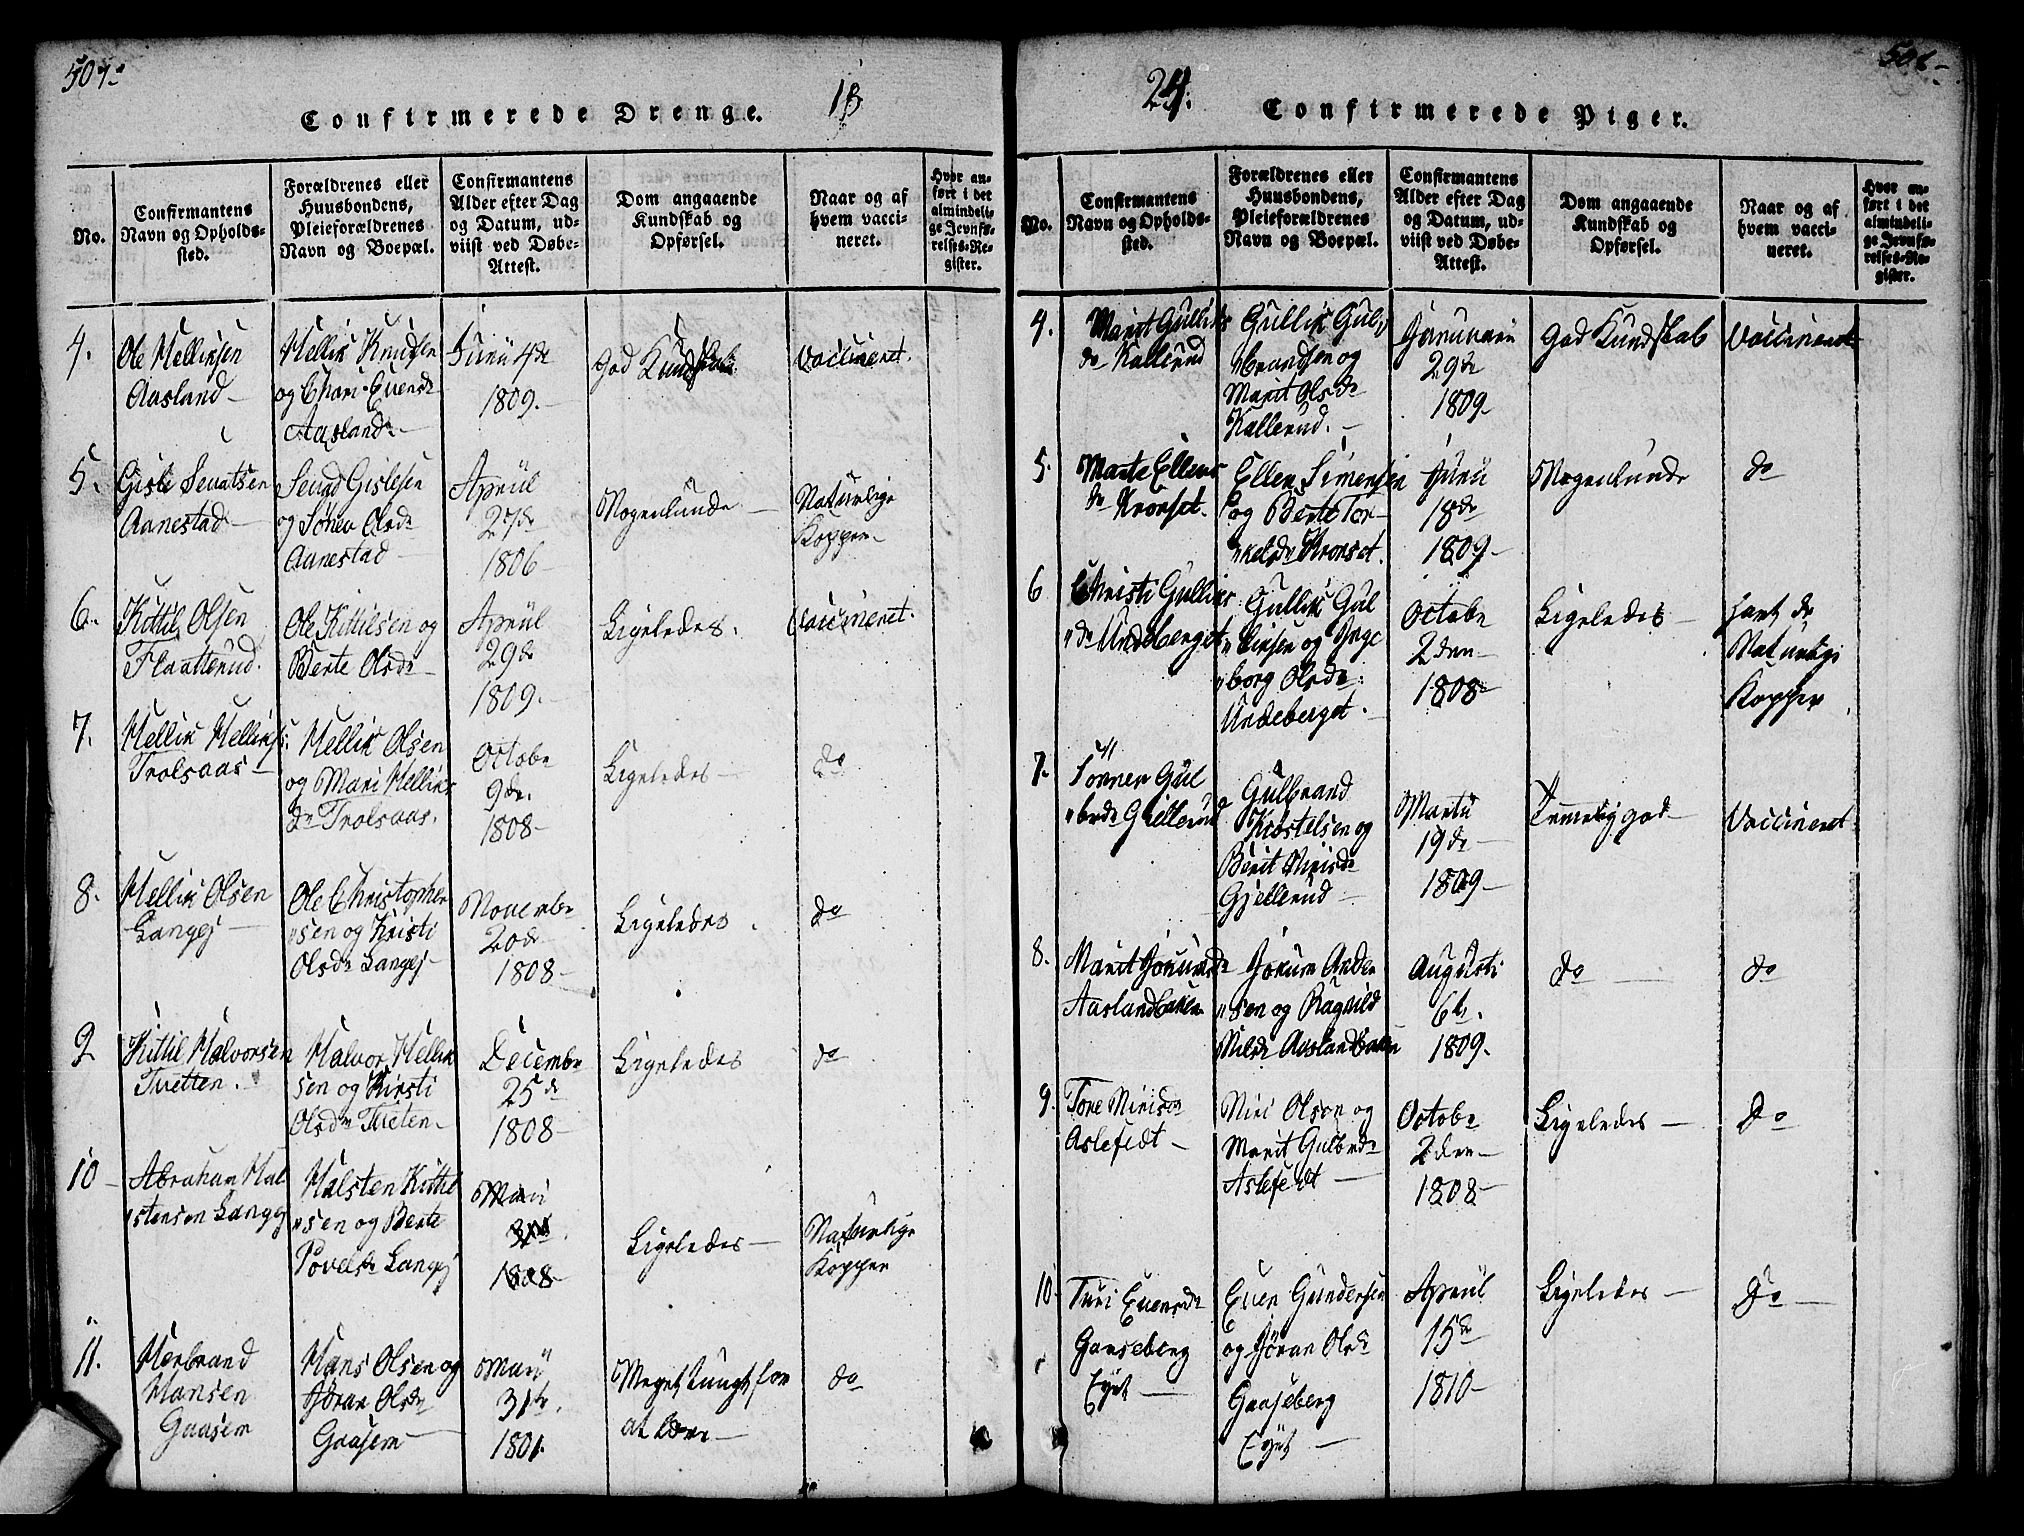 507-
Confirmerede Drenge.
13
No.
Confirmantens
Navn og Opholds-
sted.
Forældrenes eller
Huusbondens,
Pleieforældrenes
Navn og Boepæl.
Confirmantens
Alder efter Dag
og Datum, ud-
viist ved Døbe-
Attest.
Dom angaaende
Kundskab og
Opførsel.
Naar og af
hvem vacci-
neret.
Hvor an-
ført i det
almindeli-
ge Jevnfø-
relses-Re-
gister.
4.
Ole Helliksen
Aasland
Hellik Knudsen
og Chari Evensd
Aasland
Junii 4de
1809.
God Kundskab
Vaccineret.
5.
Gisle Senatsen
Annestad
Senad Gislesen
og Søneu Olsdr
Annestad
Apriil
27de
1806
Nogenlunde
Naturlige
Kopper
6.
Kittil Olsen
Flaatterud.
Ole Kittilsen og
Berte Olsdr
Apriil
29de
1809.
Ligeledes.
Vaccineret.
7.
Hellik Helliks.
Trolsaas
Hellik Olsen
og Mari Helliks
dr Trolsaas.
Octobr
9de.
1808
Ligeledes
do
8.
Hellik Olsen
Langej
Ole Christopher
"sen og Kristi
Olsdr Langej
Novembr
20de
1808
Ligeledes.
do
9
Kittil Halvorsen
Tvetten.
Halvor Hellik
sen og Kirsti
Olsdr Tveten
Decembr
25de
1808
Ligeledes
do
10
Abraham Hal
"stensen Langej
Halsten Kittil
"sen og Berte
Povelsdr Langej
Mari
31te
1808
Ligeledes
Naturlige
Kopper
11.
Herbrand
Hansen
Gaasem
Hans Olsen og
Jøran Olsdr
Gaasem
Maii
31te.
1801.
Meget tungt for
at lære
do
24.
Confirmerede Piger.
No.
Confirmantens
Navn og Opholds-
sted.
Forældrenes eller
Huusbondens,
Pleieforældrenes
Navn og Boepæl.
Confirmantens
Alder efter Dag
og Datum, ud-
viist ved Døbe-
Attest.
Dom angaaende
Kundskab og
Opførsel.
Naar og af
hvem vacci-
neret.
Hvor an-
ført i det
almindeli-
ge Jevnfø-
relses-Re-
gister.
4.
Marit Gulliks
dr Kallerud
Gullik Gul,
brandsen og
Marit Olsdr
Kallerud.
Januarii
29de
1809
God Kundskab
Vaccineret
5.
Marte Ellens
dr Kronset.
Ellen Simensen
og Berte Tor-
"kelsdr Kronset.
Junii
18de
1809
Nogenlunde
do
6
Christi Gulliks
"dr Undeberget
Gullik Gul
"liksen og Inge
"borg Olsdr
Undeberget.
Octobr
2den
1808
Ligeledes
havt de
Naturlige
Kopper
7.
Sønnev Gul
"brdr Gjellerud
Gulbrand
Kiøstelsen og
Berit Nirisdr
Gjellerud
Martii
19de
1809
Temelig god
Vaccineret
8.
Marit Jorumsdr
Aaslandbaken
Jorum Ander
"sen og Ragnild
Nilsdr Aaslandbaken
Augusti
6te.
1809.
do
do
9.
Tore Nirisdr
Aslefedt
Niri Olson og
Marit Gulbrdr
Aslefedt
Octobr
2den
1808
Ligeledes
do
10.
Turi Evensdr
Gaaseberg
Ejet
Even Gundersen
og Jøran Olsdr
Gaaseberg
Ejet
Apriil
15de
1810
Ligeledes
do